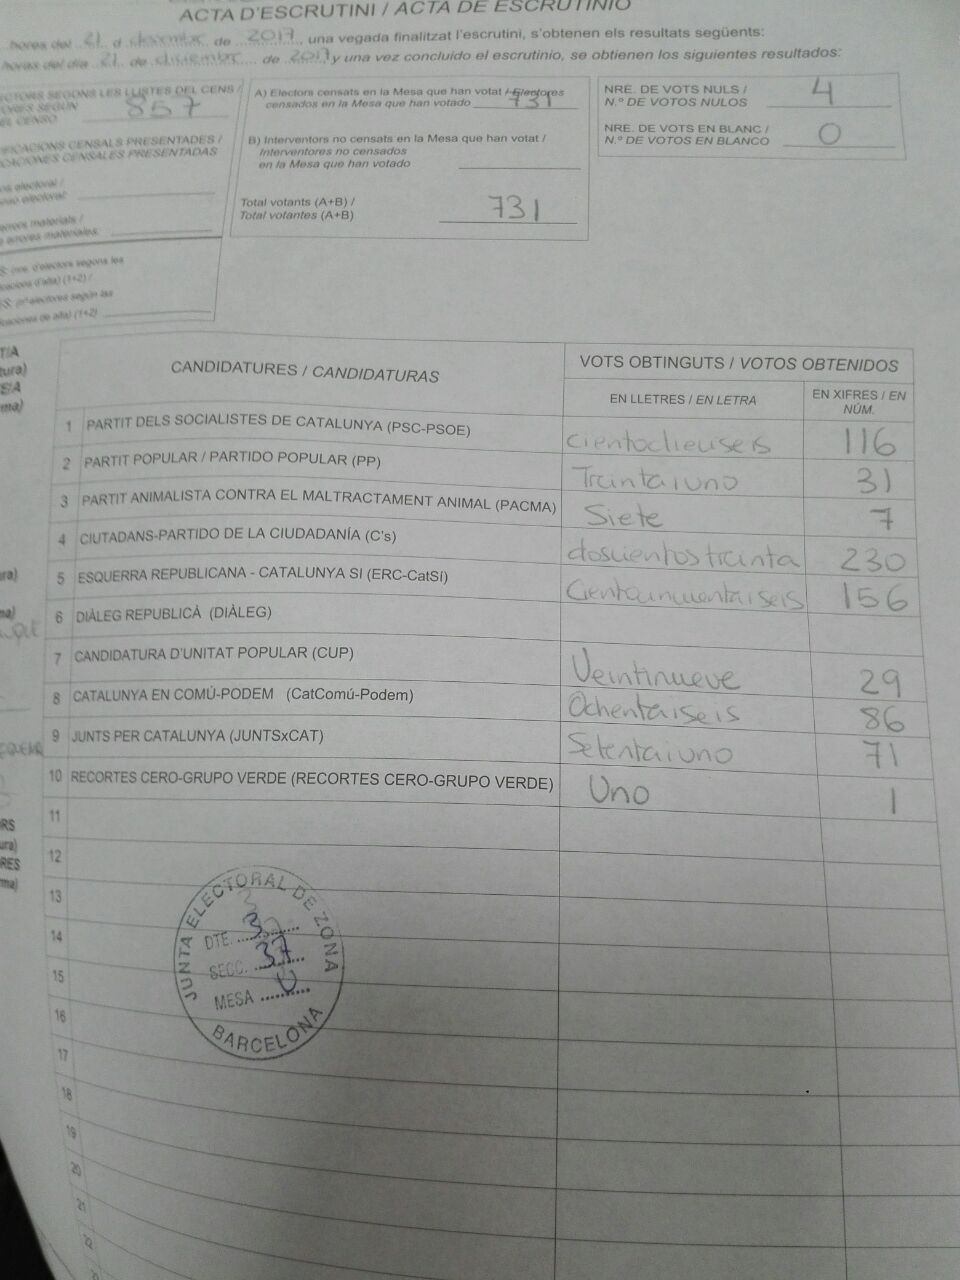 ACTA D'ESCRUTINI / ACTA DE ESCRUTINIO
hores del 21 d desembre de 2017, una vegada finalitzat l'escrutini, s'obtenen els resultats següents:
horas del día 21 de de 2017 y una vez concluido el escrutinio, se obtienen los siguientes resultados:
ECTORS SEGONS LES LLISTES DEL CENS /
ORES SEGÚN
EL CENSO 857
IFICACIONS CENSALS PRESENTADES /
CACIONES CENSALES PRESENTADAS
electoral /
electoral:
errors materials /
errores materiales:
S: nre. d'electors segons les
(1+2) /
ES: electores según las
de alta) (1+2)
A) Electors censats en la Mesa que han votat / Electores
censados en la Mesa que han votado 731
B) Interventors no censats en la Mesa que han votat /
Interventores no censados
en la Mesa que han votado
Total votants (A+B) /
Total votantes (A+B) 731
NRE. DE VOTS NULS /
N.º DE VOTOS NULOS 4
NRE. DE VOTS EN BLANC /
N.º DE VOTOS EN BLANCO 0
CANDIDATURES / CANDIDATURAS
VOTS OBTINGUTS / VOTOS OBTENIDOS
EN LLETRES / EN LETRA
EN XIFRES / EN
NÚM.
1 PARTIT DELS SOCIALISTES DE CATALUNYA (PSC-PSOE) Cientodieciseis 116
2 PARTIT POPULAR / PARTIDO POPULAR (PP) Treintaiuno 31
3 PARTIT ANIMALISTA CONTRA EL MALTRACTAMENT ANIMAL (PACMA) Siete 7
4 CIUTADANS-PARTIDO DE LA CIUDADANÍA (C's) doscientos treinta 230
5 ESQUERRA REPUBLICANA - CATALUNYA SI (ERC-CatSí) 156
6 DIÀLEG REPUBLICÀ (DIÀLEG)
7 CANDIDATURA D'UNITAT POPULAR (CUP) Veintinueve 29
8 CATALUNYA EN COMÚ-PODEM (CatComú-Podem) Ochentaiseis 86
9 JUNTS PER CATALUNYA (JUNTSxCAT) Setentaiuno 71
10 RECORTES CERO-GRUPO VERDE (RECORTES CERO-GRUPO VERDE) Uno 1
11
12
13
14
15
16
17
18
19
20
21
22
JUNTA ELECTORAL DE ZONA
DTE. 3
SECC. 37
MESA U
BARCELONA